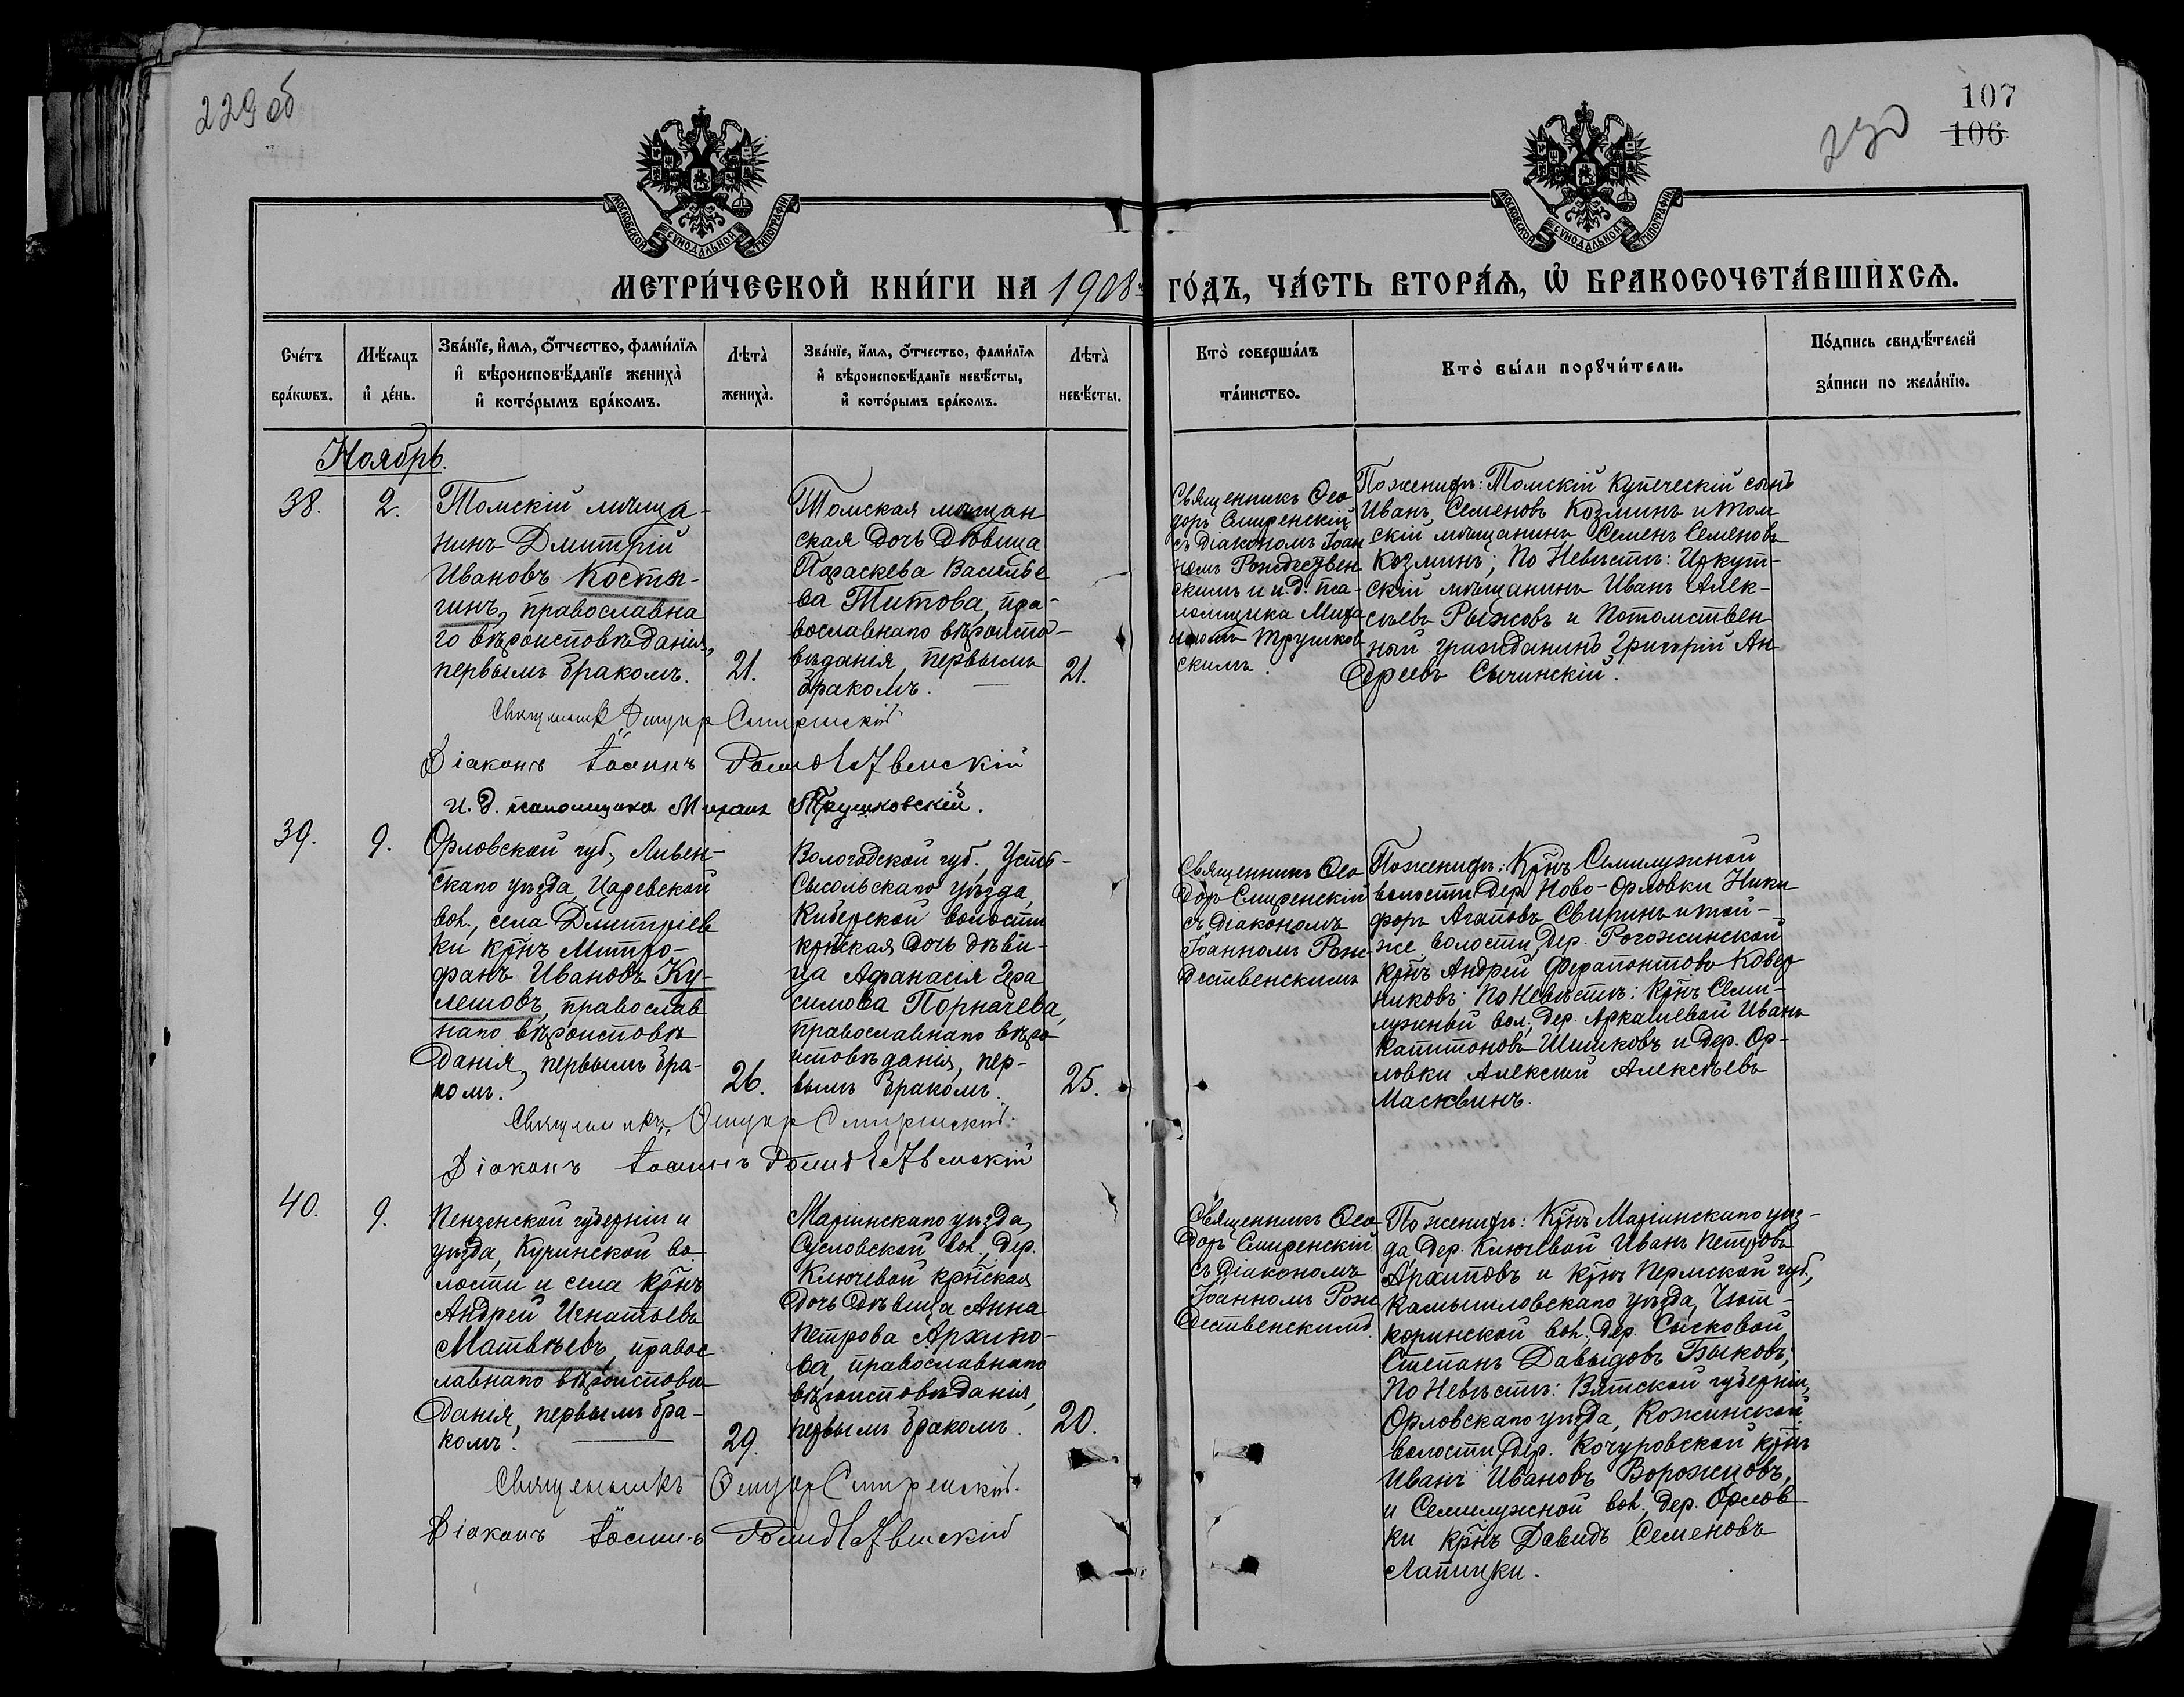 229 об
230
107
106
МОСКОВСКОЙ СѴНОДАЛЬНОЙ ТИПОГРАФІИ
МОСКОВСКОЙ СѴНОДАЛЬНОЙ ТИПОГРАФІИ
МЕТРИ́ЧЕСКОЙ КНИ́ГИ НА 1908 ГО́ДЪ, ЧА́СТЬ ВТОРА́Ѧ, Ѽ БРАКОСОЧЕТА́ВШИХСѦ.
Сче́тъ
бра́кѡвъ.
Мѣ́сѧцъ
и҆ де́нь.
Зва́нїе, и҆́мѧ, ѻ҆́тчество, фамі́лїѧ
и҆ вѣроисповѣ́данїе жениха̀
и҆ кото́рымъ бра́комъ.
Лѣта̀
жениха̀.
Зва́нїе, и҆́мѧ, ѻ҆́тчество, фамі́лїѧ
и҆ вѣроисповѣ́данїе невѣ́сты,
и҆ кото́рымъ бра́комъ.
Лѣта̀
невѣ́сты.
Кто̀ соверша́лъ
та́инство.
Кто̀ бы́ли порꙋчи́тели.
По́дпись свидѣ́телей
за́писи по жела́нїю.
Ноябрь.
38.
2.
Томскій мѣща-
нинъ Дмитрій
Ивановъ Косты-
гинъ, православна
го вѣроисповѣданія,
первымъ бракомъ.
21.
Томская мѣщан
ская дочь дѣвица
Параскева Василье
ва Титова, пра-
вославнаго вѣроиспо-
вѣданія, первымъ
бракомъ.
21.
Священникъ Ѳео
доръ Смиренскій
съ діакономъ Іоан
номъ Рождествен
скимъ и и.д. пса-
ломщика Миха
иломъ Трушков
скимъ.
По женихѣ: Томскій купеческій сынъ
Иванъ Семеновъ Козминъ и том
скій мѣщанинъ Семенъ Семеновъ
Козминъ; По Невѣстѣ: Иркут-
скій мѣщанинъ Иванъ Алек-
сѣевъ Рыжовъ и Потомствен
ный гражданинъ Григорій Ан-
дреевъ Сычинскій.
Священникъ Ѳеодоръ Смиренскій
Діаконъ Іоаннъ Рождественскій
и. д. псаломщика Михаилъ Трушковскій.
39.
9.
Орловской губ., Ливен-
скаго уѣзда, Царевской
вол., села Дмитріев
ки крнъ Митро-
фанъ Ивановъ Ку-
лешовъ, православ
наго вѣроисповѣ
данія, первымъ бра-
комъ.
26.
Вологодской губ., Усть-
Сысольскаго уѣзда,
Киберской волости
крнская дочь дѣви-
ца Афанасія Гера
симова Порначева,
православнаго вѣро
исповѣданія, пер-
вымъ бракомъ.
25.
Священникъ Ѳео
доръ Смиренскій
съ діакономъ
Іоанномъ Рож
дественскимъ
По женихѣ: Крнъ Семилужной
волости дер. Ново-Орловки Ники
форъ Агаповъ Свиринъ и той-
же волости, дер. Рогожинской
крнъ Андрей Ферапонтовъ Ковер
никовъ: По Невѣстѣ: Крнъ Семи-
лужной вол., дер. Аркашевой Иванъ
Капитоновъ Шишковъ и дер. Ор-
ловки Алексѣй Алексѣевъ
Масквинъ.
Священникъ Ѳеодоръ Смиренскій.
Діаконъ Іоаннъ Рождественскій
40.
9.
Пензенской губерніи и
уѣзда, Кучинской во
лости и села крнъ
Андрей Игнатьевъ
Матвѣевъ, правос
лавнаго вѣроисповѣ
данія, первымъ бра-
комъ.
29.
Маріинскаго уѣзда,
Сусловской вол., дер.
Ключевой крнская
дочь дѣвица Анна
Петрова Архипо-
ва, православнаго
вѣроисповѣданія,
первымъ бракомъ.
20.
Священникъ Ѳео
доръ Смиренскій
съ діакономъ
Іоанномъ Рож
дественскимъ.
По женихѣ: Крнъ Маріинскаго уѣз-
да дер. Ключевой Иванъ Петровъ
Архиповъ и крнъ Пермской губ.,
Камышловскаго уѣзда,
вол., дер. Сысковой
Степанъ Давыдовъ Быковъ;
По Невѣстѣ: Вятской губерніи,
Орловскаго уѣзда, Кожинской
волости дер. Кочуровской крнъ
Иванъ Ивановъ Ворожцовъ,
и Семилужной вол., дер. Орлов-
ки крнъ Давидъ Семеновъ
Лапицки.
Священникъ Ѳеодоръ Смиренскій.
Діаконъ Іоаннъ Рождественскій